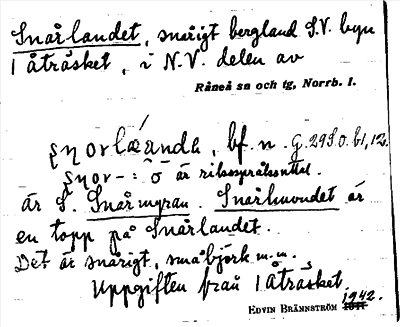 Snårlandet, snårigt bergland S.V. byn
1 åträsket, i N.V. delen av
Råneå sn och tg, Norrb. l.
ʂnorlǽanda, bf. n. G. 293.0. b1, 12.
ʂnor-: o är riksspråksuttal.
är S. Snårmyran. Snårhuvudet är
en topp på Snårlandet.
Det är snårigt, småbjörk m.m.
Uppgiften från 1 åträsket.
EDVIN BRÄNNSTRÖM 1942.